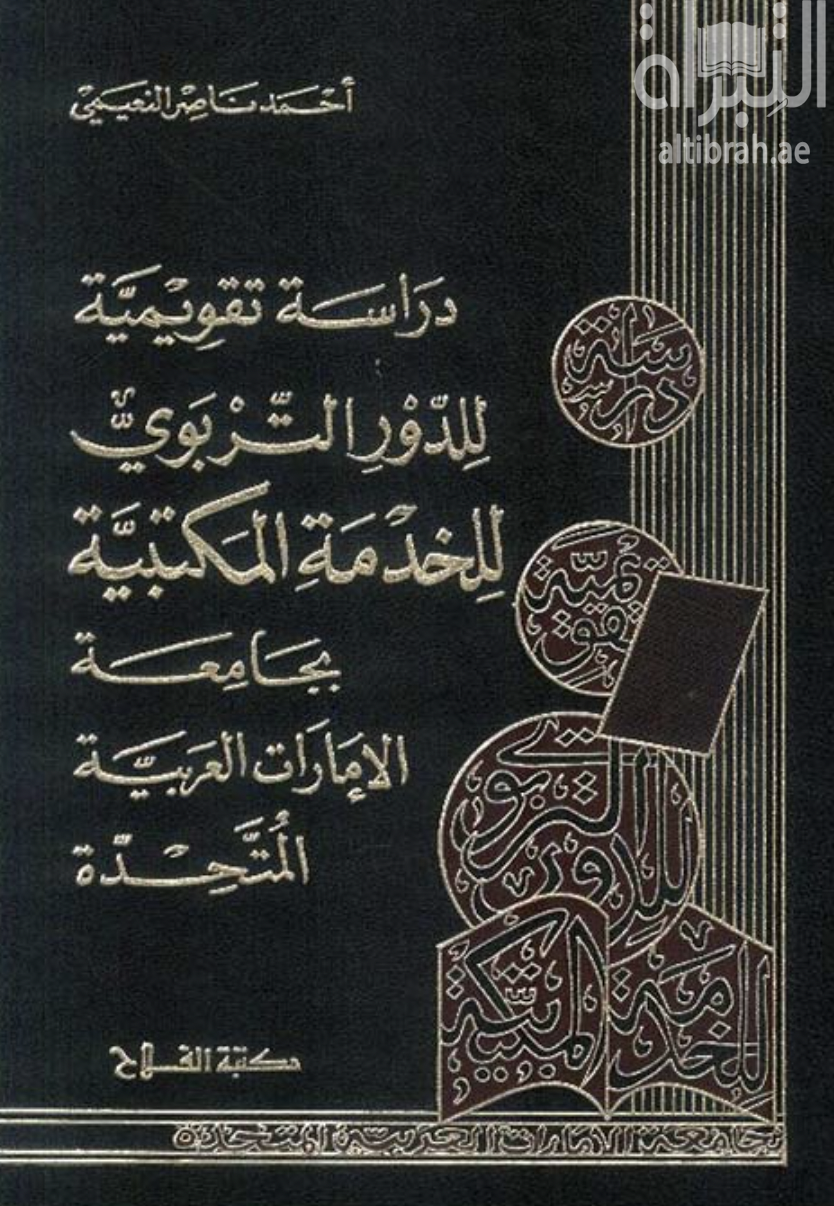 التبراة
altibrah.ae
أحمد ناصر النعيمي
دراسة تقويمية
للدّور التّربويّ
للخدمة المكتبيّة
بجامعة
الإمارات العربيّة
المتَّحدّة
مكتبة الفلاح
دراسة
تقويمية
للدور التربوي
للخدمة المكتبية
جامعة الامارات العربية المتحدة